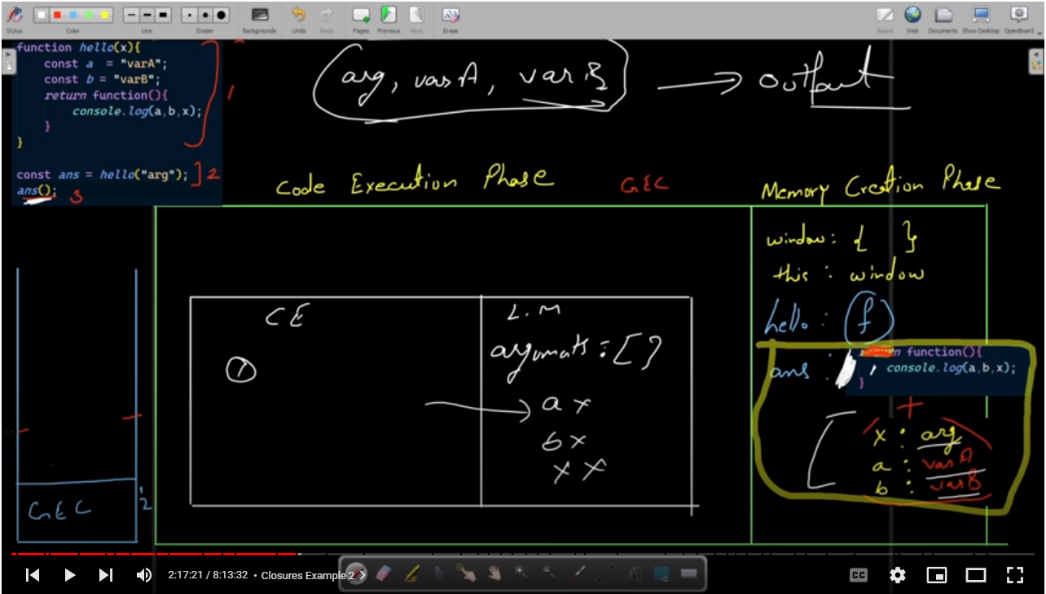 Stylus Color Line Eraser Backgrounds Undo Redo Pages Previous Next Erase Board Web Documents Show Desktop OpenBoard
function hello(x){
const a = "varA";
const b = "varB";
return function(){
console.log(a,b,x);
}
}
const ans = hello("arg");
ans();
1
2
3
arg, varA, varB → output
Code Execution Phase GEC Memory Creation Phase
window: { }
this : window
hello : f
ans :
function(){
console.log(a,b,x);
}
+
x : arg
a : varA
b : varB
CE L.M
arguments : [ }
1
→ a x
b x
x x
GEC
2
2:17:21 / 8:13:32 • Closures Example 2 >
CC